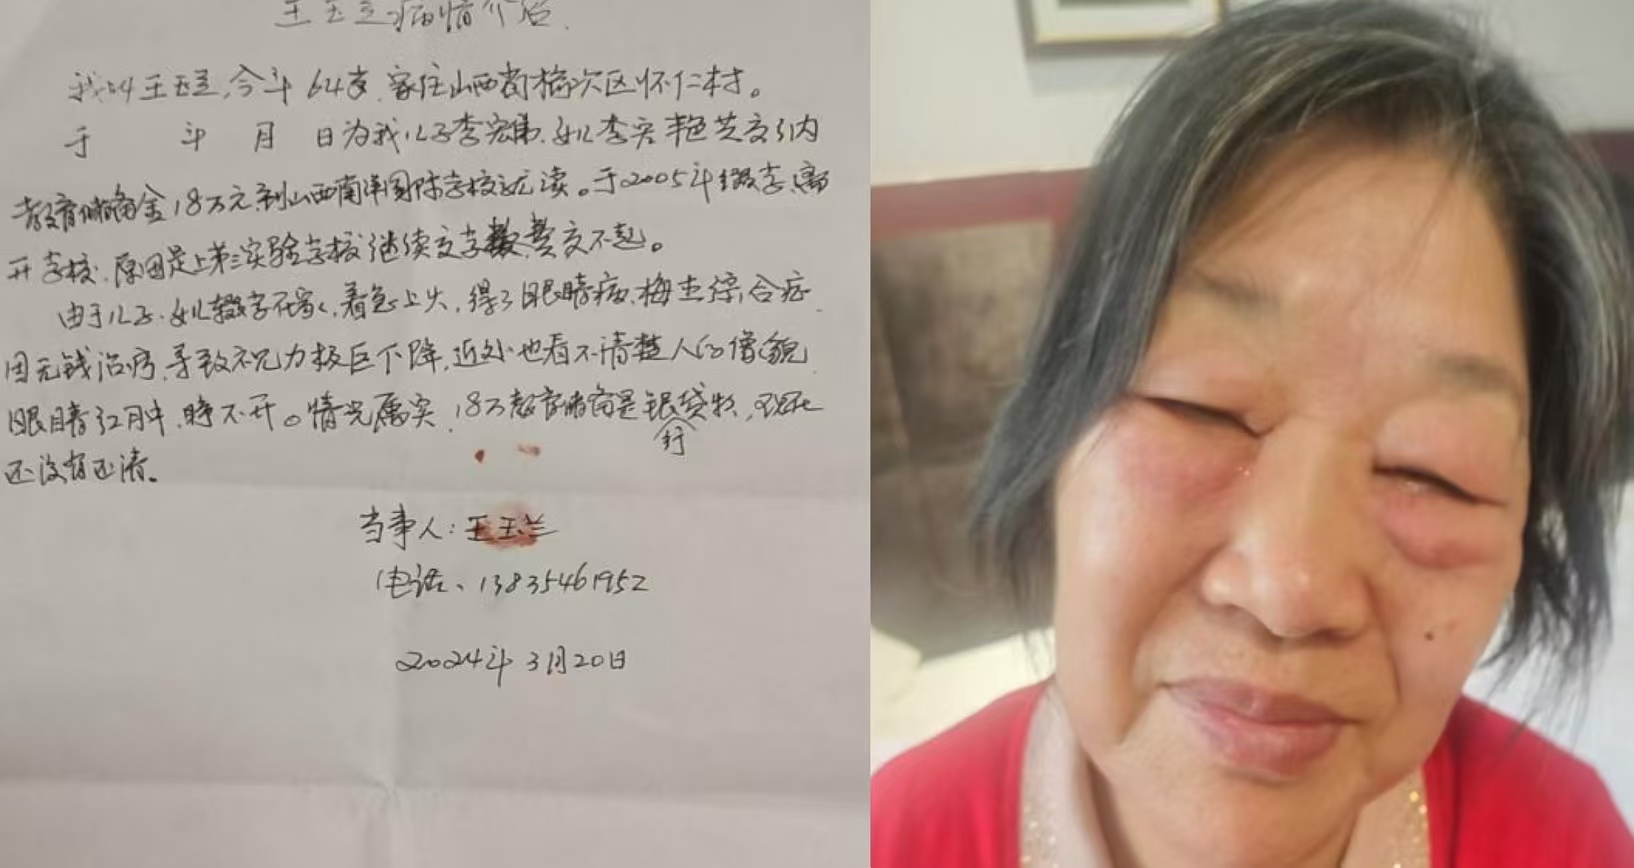 王玉兰病情介绍
我叫王玉兰,今年64岁,家住山西省榆次区怀仁村。
于 年 月 日为我儿子李宏伟、女儿李 艳 交 内
教育储备金18万元到山西南洋国际学校就读。于2005年辍学离
开学校,原因是上第三实验学校继续交学费交不起。
由于儿子、女儿辍学在家,着急上火,得了眼睛病,梅杰综合症
因无钱治疗,导致视力极巨下降,近处也看不清楚人的像貌
眼睛红肿,睁不开。情况属实,18万教育储备是银行贷款,现在
还没有还清。
当事人:王玉兰
电话、13835461952
2024年3月20日